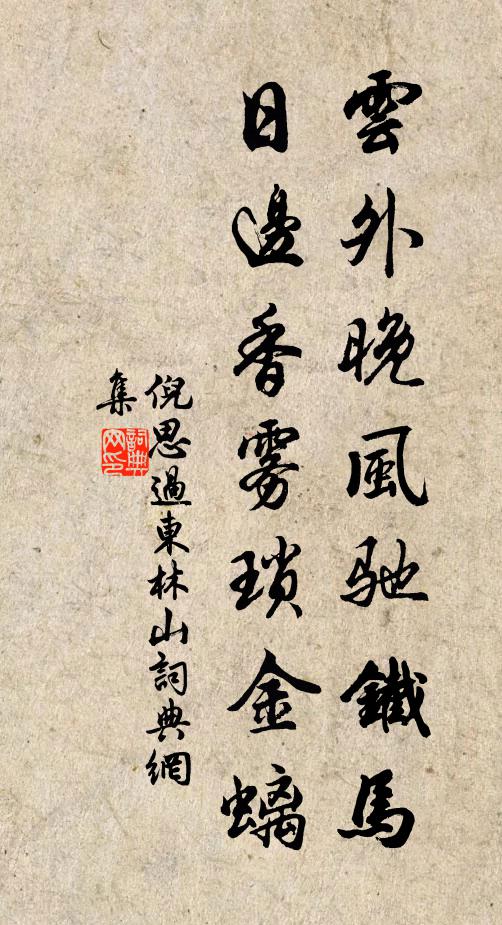 雲外晚風馳鐵馬
日邊香雾瑣金螭
倪思過東林山詞典網
集
詞典
网印